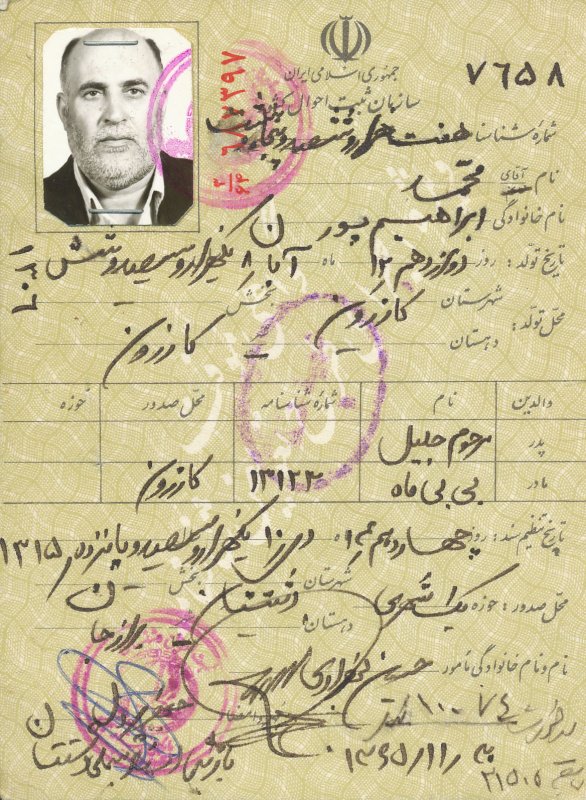 جمهوری اسلامی ایران
سازمان ثبت احوال کشور
۷۶۵۸
۶۸۷۳۹۷
۳/۶۳
شماره شناسنامه هفت هزار و ششصد و پنجاه و هشت
نام آقای محمد
نام خانوادگی ابراهیم پور
تاریخ تولد: روز دوازدهم ۱۲ ماه آبان ۸ یکهزار و سیصد و شش
محل تولد: شهرستان کازرون بخش
دهستان کازرون
والدین نام شماره شناسنامه محل صدور حوزه
پدر مرحوم جلیل
مادر بی بی ماه ۱۳۱۲۳ کازرون
تاریخ تنظیم سند: روز چهاردهم ۱۴ ماه دی ۱۰ یکهزار و سیصد و پانزده ۱۳۱۵
محل صدور: حوزه یک شهری شهرستان دشتستان بخش
دهستان برازجان
نام و نام خانوادگی مأمور حسن
۱۳۶۵/۱۱/۲
۲۱۵۰۵